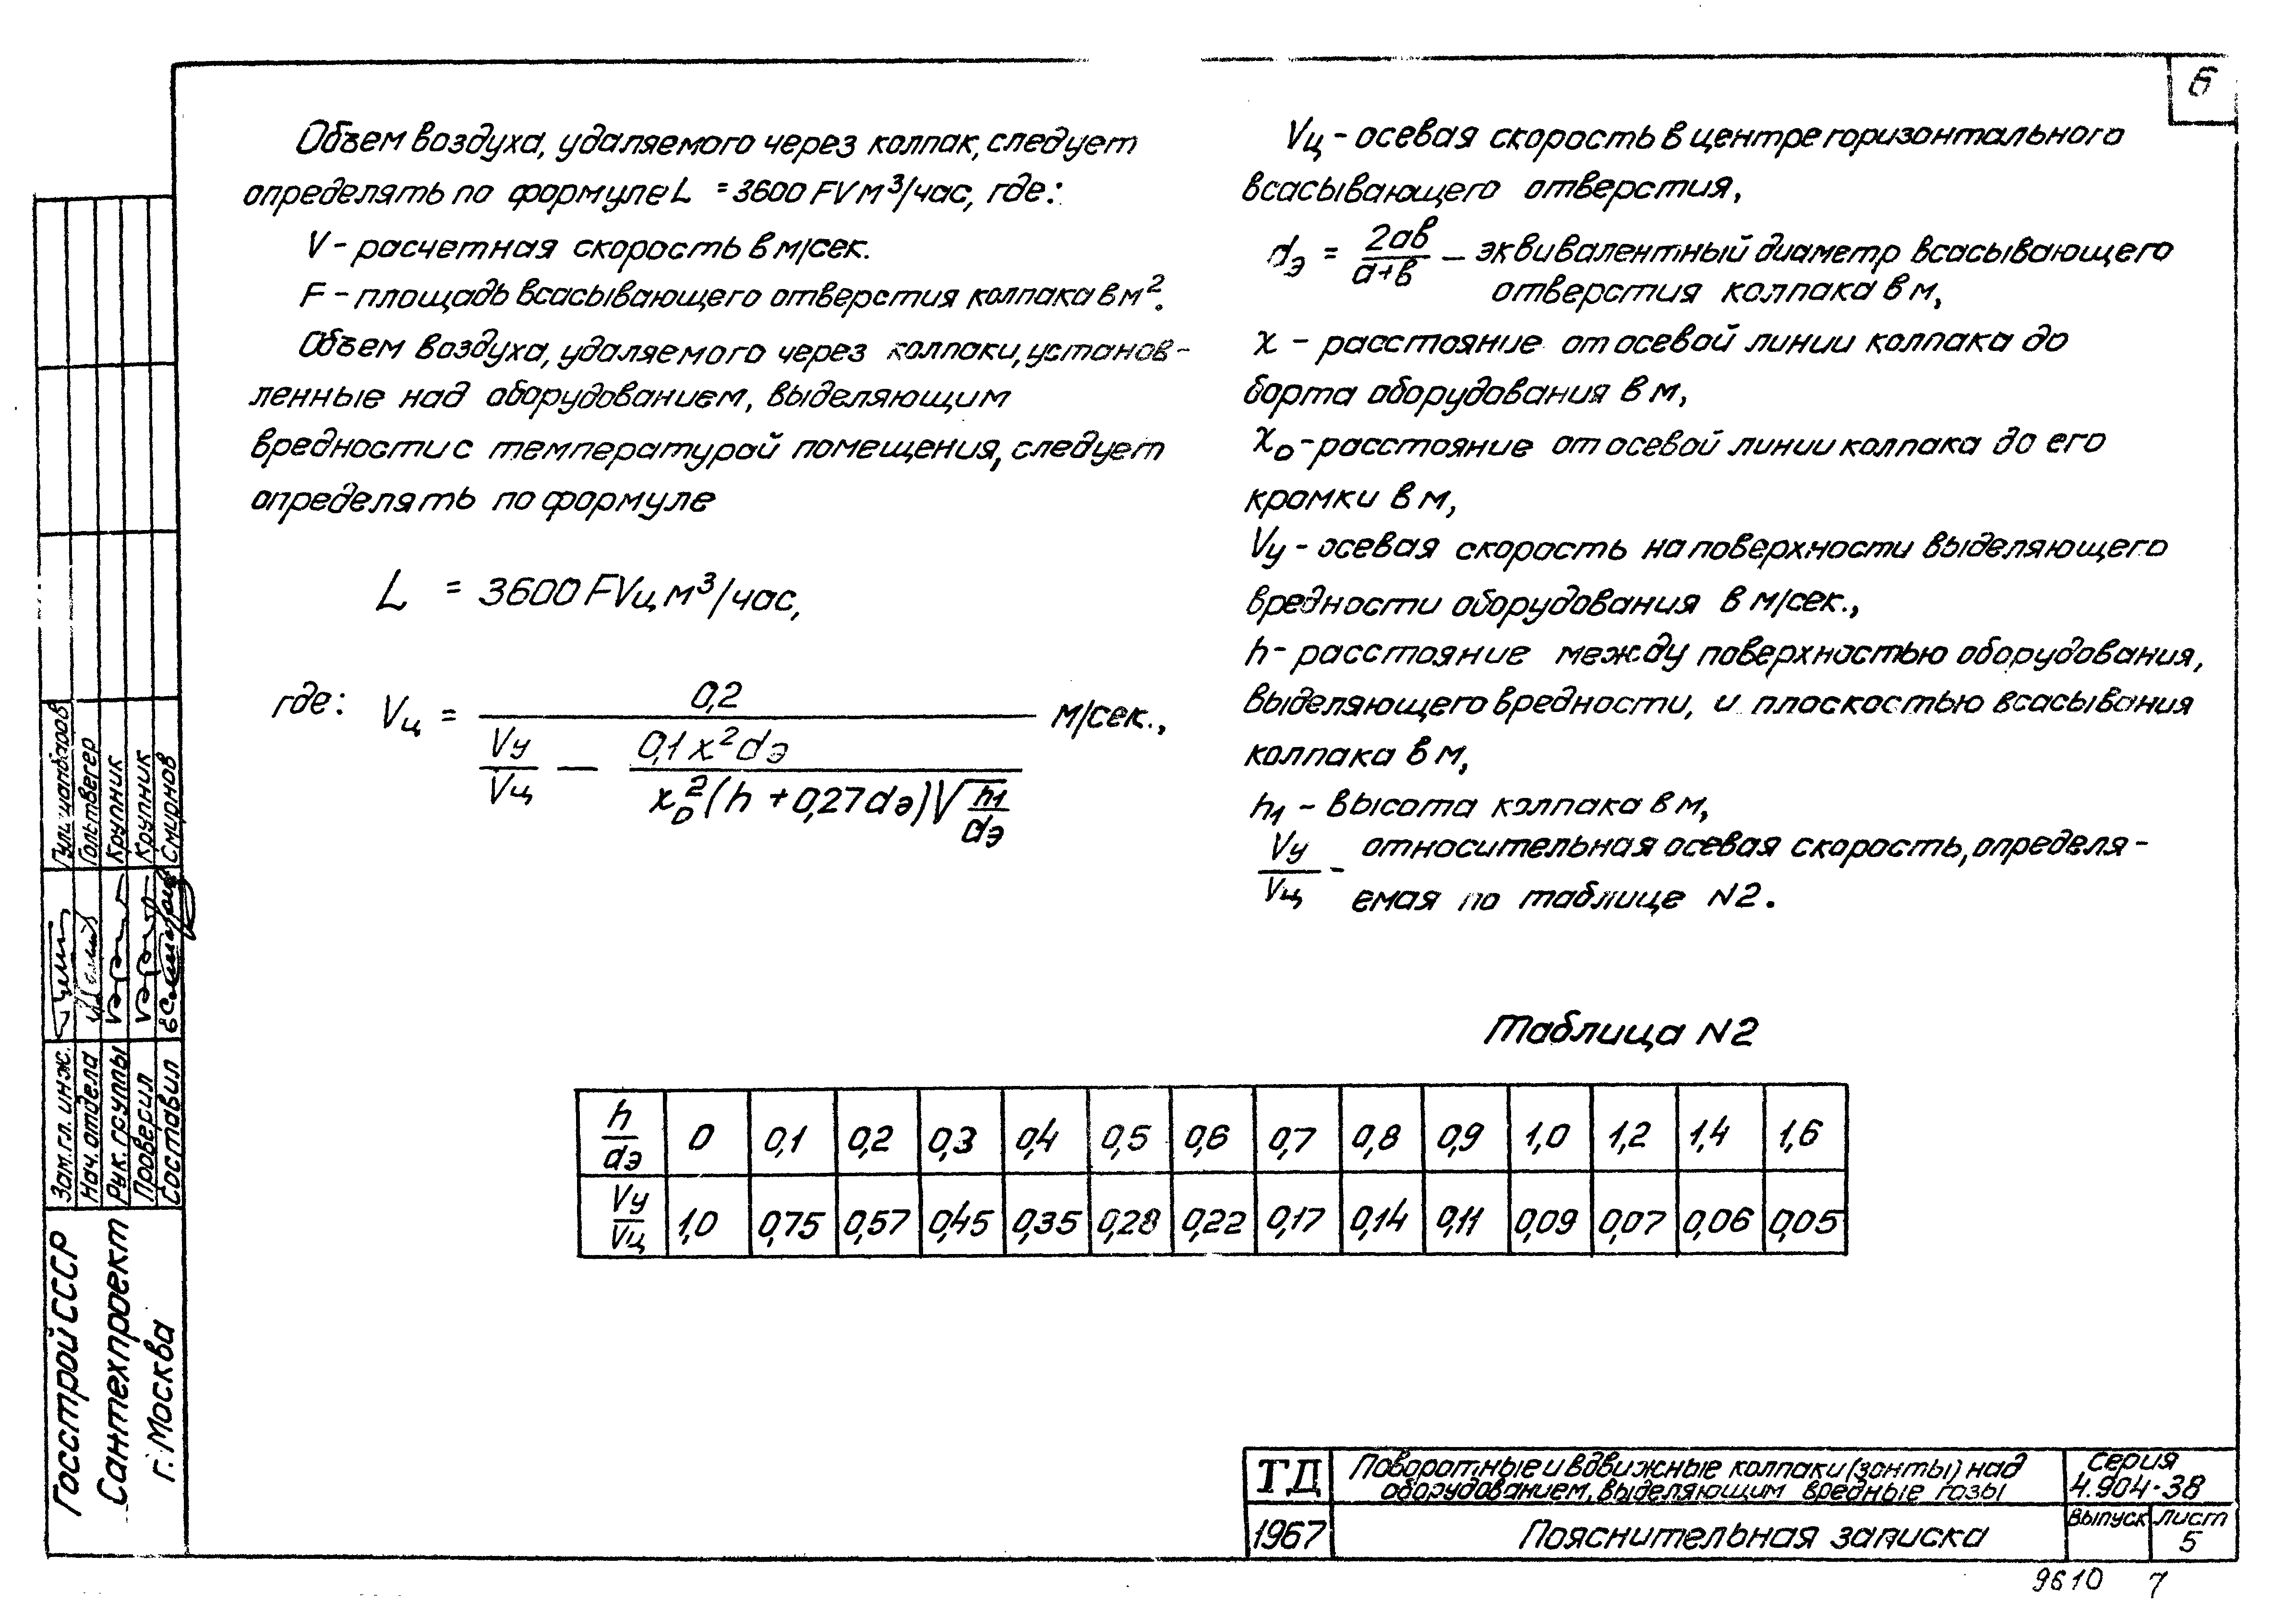 6
Объем воздуха, удаляемого через колпак, следует
определять по формуле L = 3600 FV м³/час, где:
V - расчетная скорость в м/сек.
F - площадь всасывающего отверстия колпака в м².
Объем воздуха, удаляемого через колпаки, установ-
ленные над оборудованием, выделяющим
вредности с температурой помещения, следует
определять по формуле
L = 3600 FVц м³/час,
где: Vц = 0,2 / (Vу/Vц - 0,1 x² dэ / (x₀² (h + 0,27 dэ) √(h₁/dэ))) м/сек.,
Vц - осевая скорость в центре горизонтального
всасывающего отверстия,
dэ = 2ав/(а+в) - эквивалентный диаметр всасывающего
отверстия колпака в м,
x - расстояние от осевой линии колпака до
борта оборудования в м,
x₀ - расстояние от осевой линии колпака до его
кромки в м,
Vу - осевая скорость на поверхности выделяющего
вредности оборудования в м/сек.,
h - расстояние между поверхностью оборудования,
выделяющего вредности, и плоскостью всасывания
колпака в м,
h₁ - высота колпака в м,
Vу/Vц - относительная осевая скорость, определя-
емая по таблице N2.
Таблица N2
h/dэ 0 0,1 0,2 0,3 0,4 0,5 0,6 0,7 0,8 0,9 1,0 1,2 1,4 1,6
Vу/Vц 1,0 0,75 0,57 0,45 0,35 0,28 0,22 0,17 0,14 0,11 0,09 0,07 0,06 0,05
Зам. гл. инж.
Нач. отдела Гольтвегер
Рук. группы Крупник
Проверил Крупник
Составил Смирнов
Госстрой СССР
Сантехпроект
г. Москва
ТД
Поворотные и вдвижные колпаки (зонты) над
оборудованием, выделяющим вредные газы
серия
4.904-38
1967
Пояснительная записка
выпуск
лист
5
9610 7